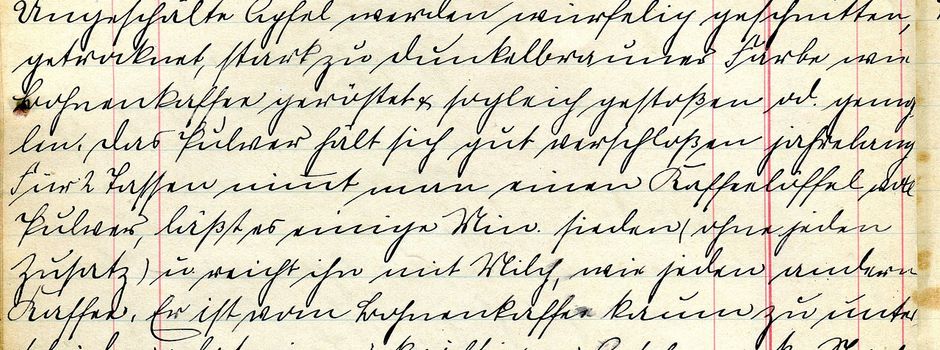 Ungeschälte Äpfel werden würfelig geschnitten,
getrocknet, stark zu dunkelbrauner Farbe wie
Bohnenkaffee geröstet & sogleich gestoßen od. gemah
len. Das Pulver hält sich gut verschloßen jahrelang
Für 2 Tassen nimmt man einen Kaffeelöffel voll
Pulver, läßt es einige Min. sieden (ohne jeden
Zusatz) u. reicht ihn mit Milch, wie jeden andern
Kaffee. Er ist vom Bohnenkaffee kaum zu unter